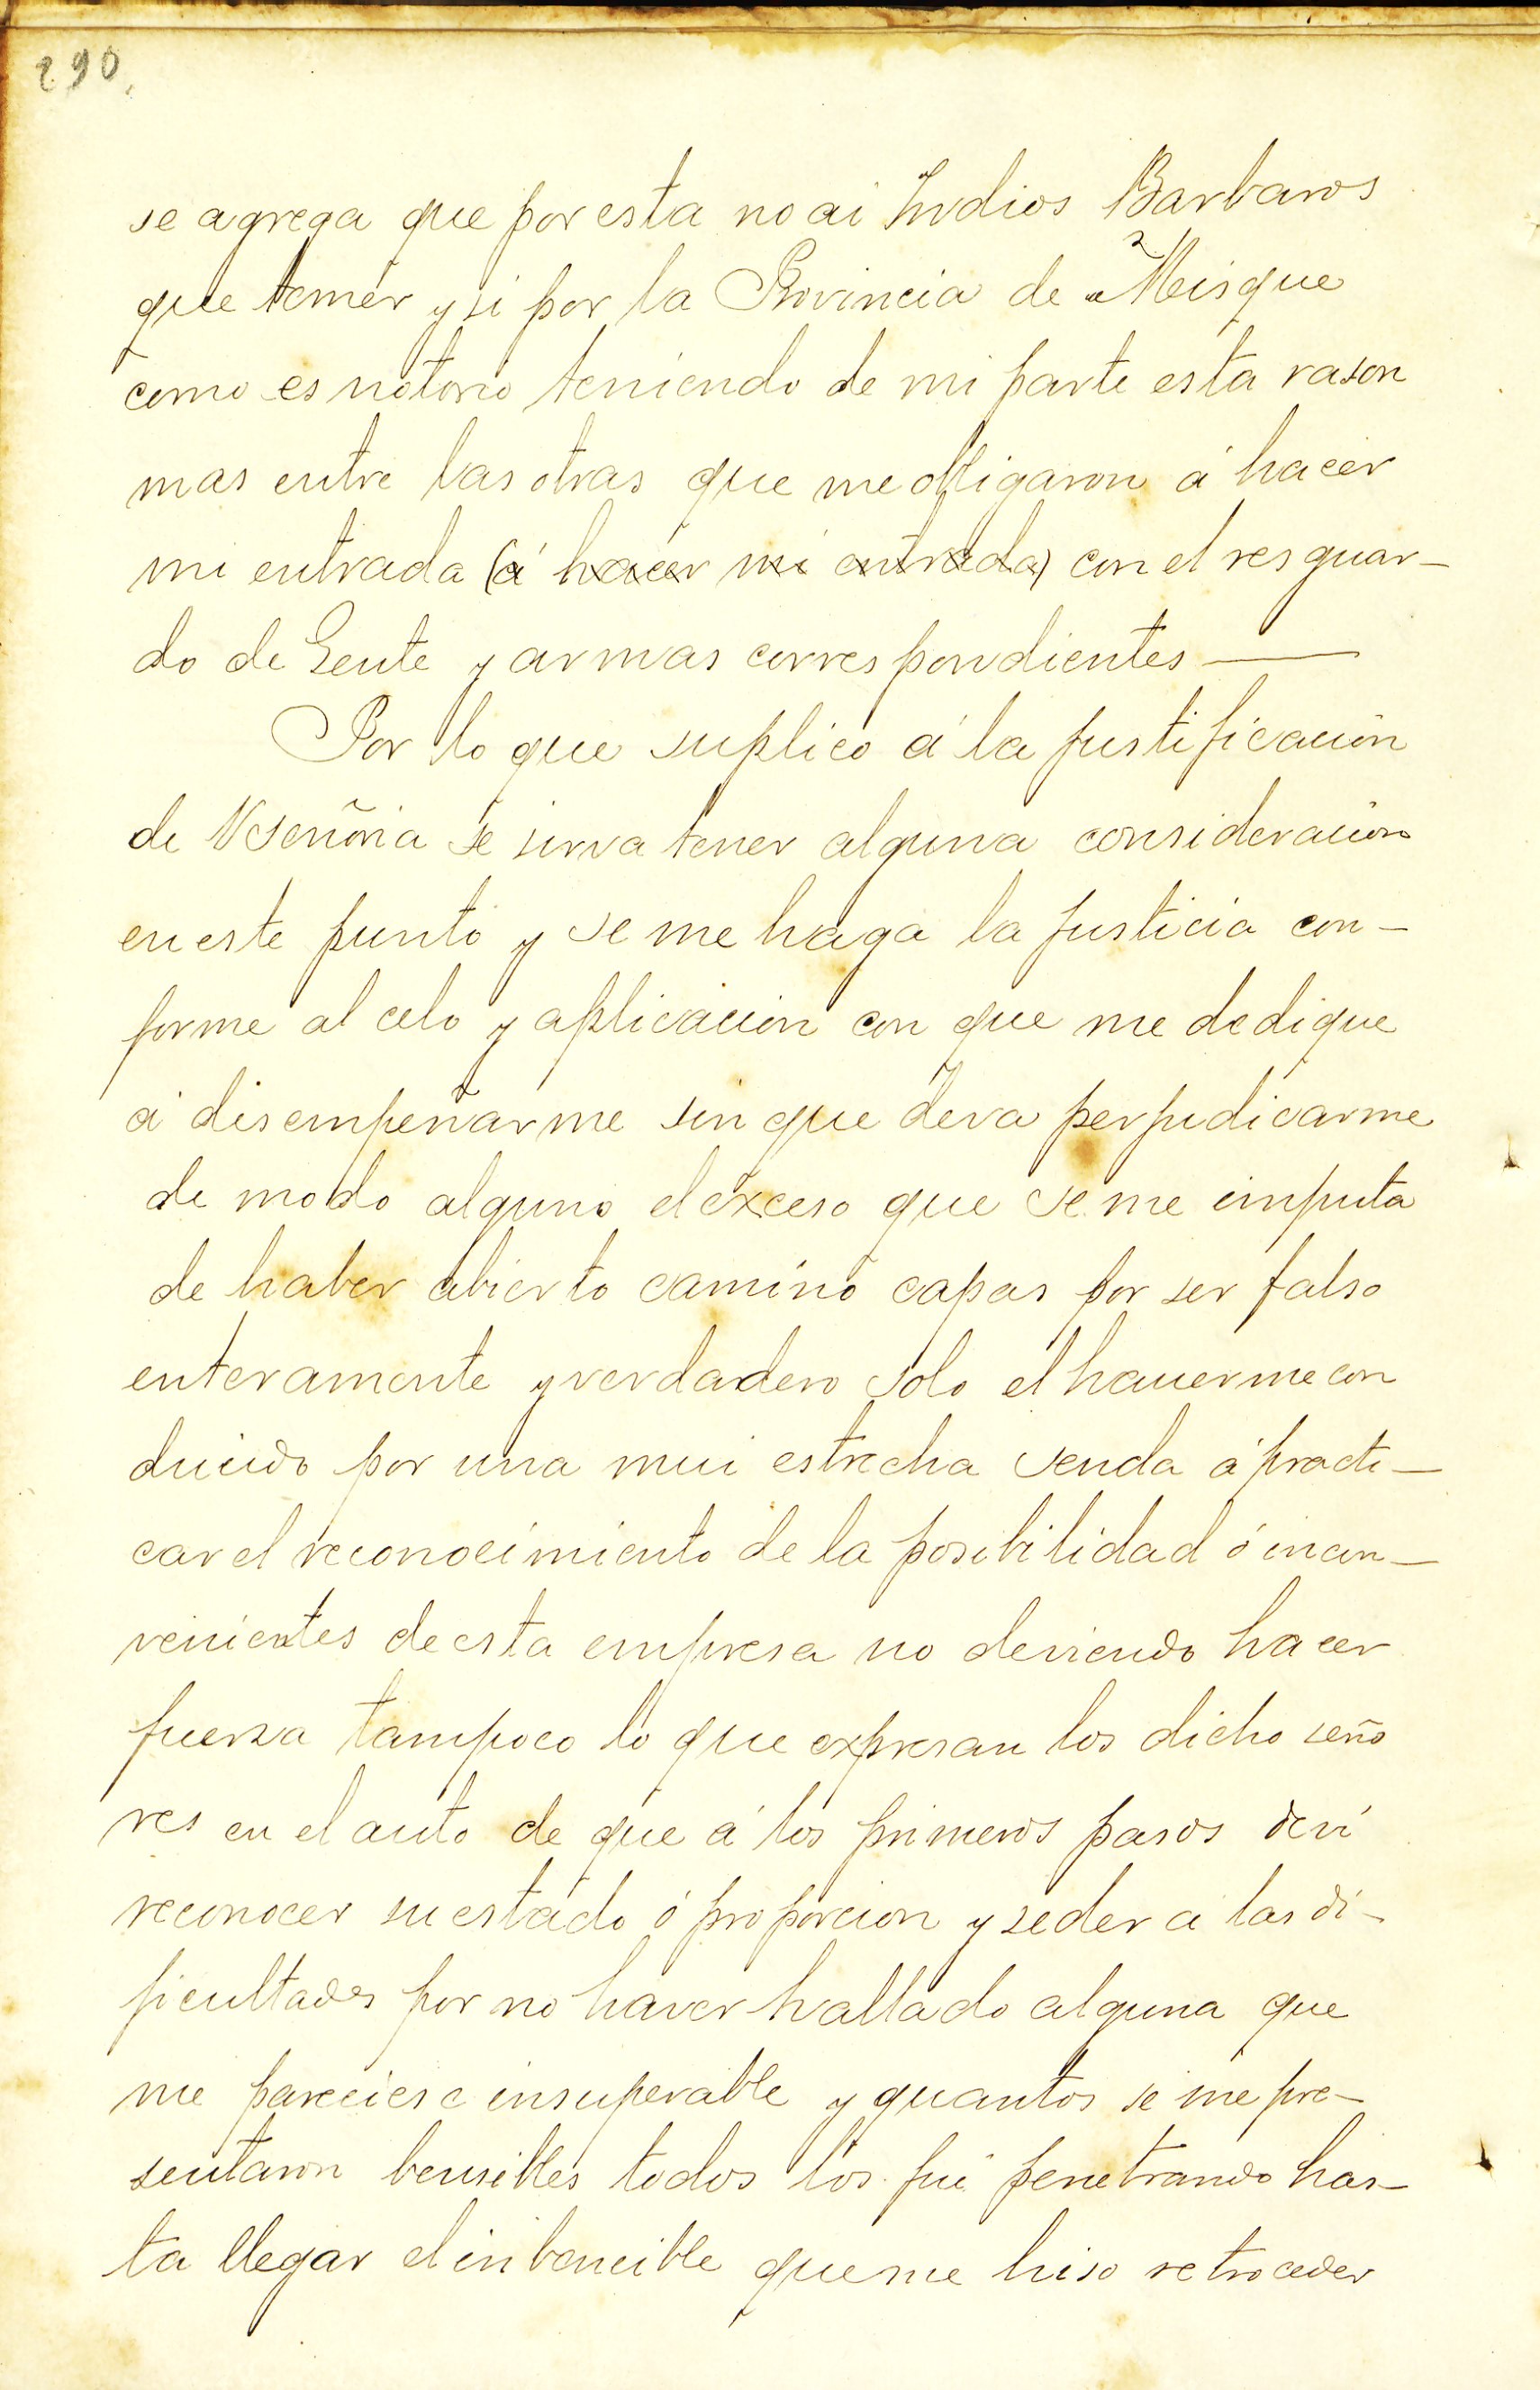 290.
se agrega que por esta no ai Indios Barbaros
que temér y si por la Provincia de Misque
como es notorio teniendo de mi parte esta rason
mas entre las otras que me obligaron á hacer
mi entrada (á hacer mi entrada) con el resguar-
do de Gente y armas correspondientes —
Por lo que suplico á la justificación
de Vseñoria se sirva tener alguna consideración
en este punto y se me haga la justicia con-
forme al celo y aplicación con que me dedique
á disempeñarme sin que deva perjudicarme
de modo alguno el exceso que se me imputa
de haber abierto camino capas por ser falso
enteramente y verdadero solo el hauerme con
ducido por una mui estrecha senda á practi-
car el reconocimiento de la posibilidad ó incon-
venientes de esta empresa no deviendo hacer
fuersa tampoco lo que expresan los dicho seño
res en el auto de que á los primeros pasos deví
reconocer su estado ó proporcion y seder á las di-
ficultades por no haver hallado alguna que
me pareciese insuperable y quantos se me pre-
sentaron bensibles todos los fui penetrando has-
ta llegar el inbencible que me hiso retroceder